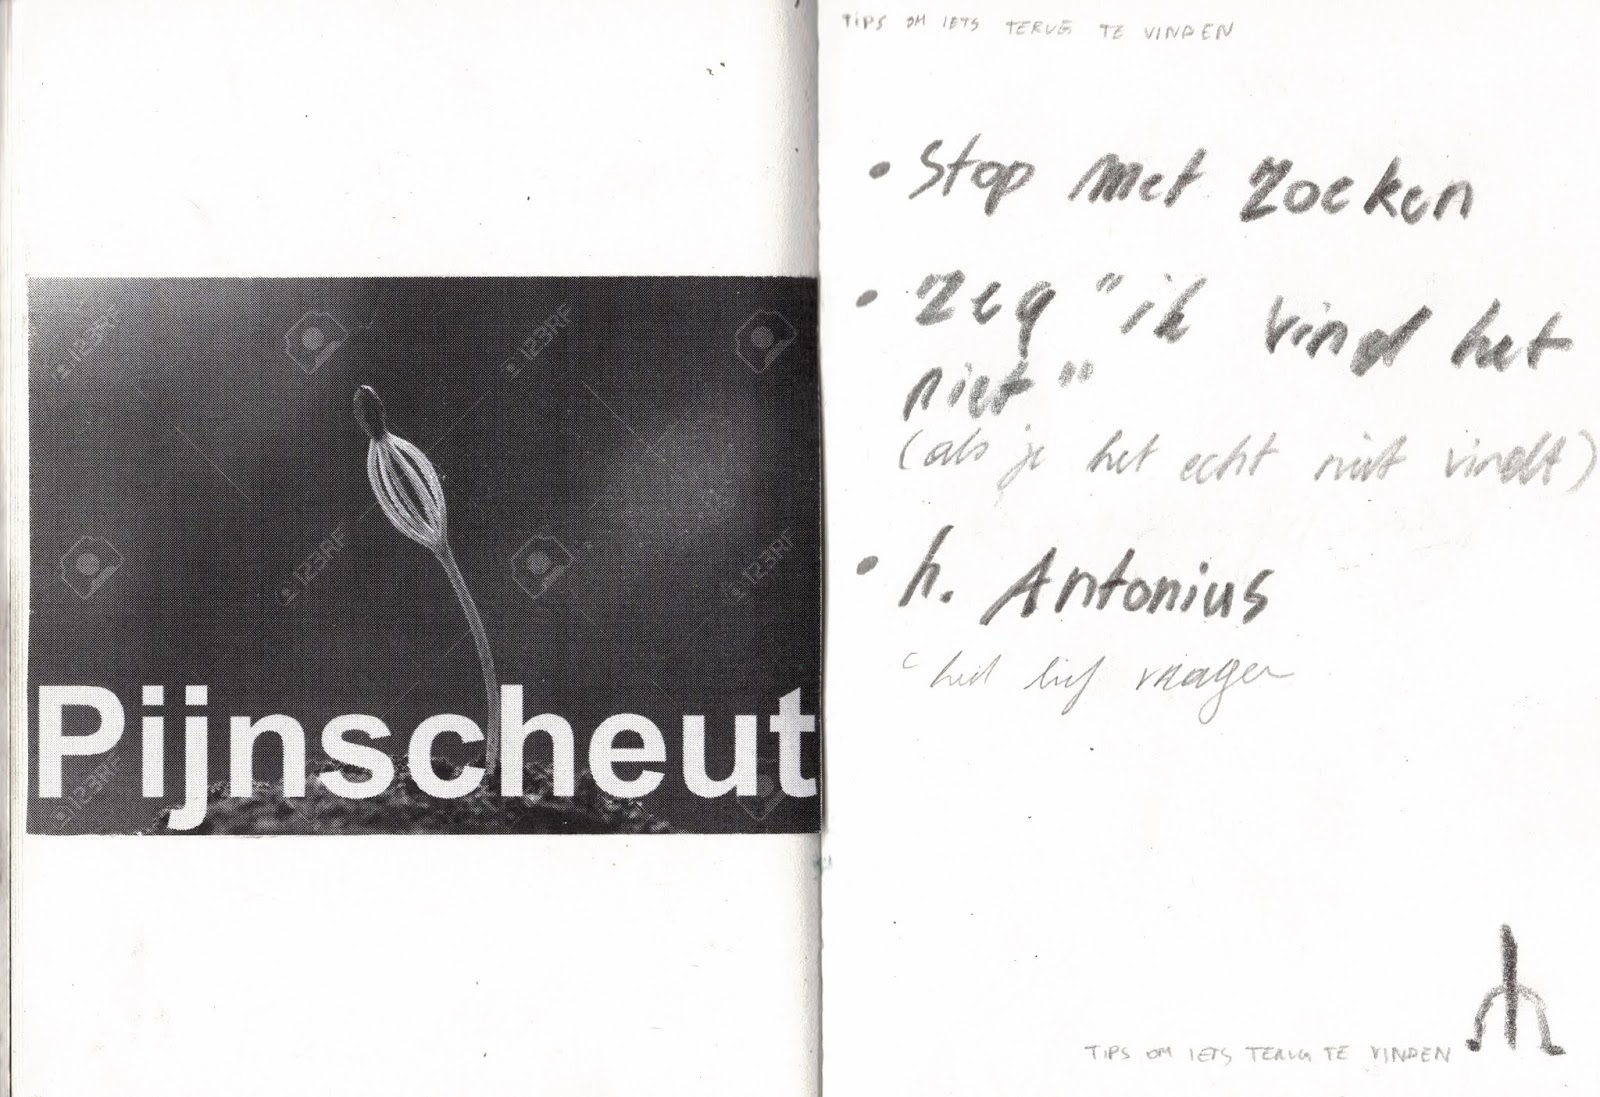 Pijnscheut
123RF
123RF
123RF
123RF
123RF
TIPS OM IETS TERUG TE VINDEN
• Stop met zoeken
• Zeg "ik vind het
niet"
(als je het echt niet vindt)
• h. Antonius
vragen
TIPS OM IETS TERUG TE VINDEN